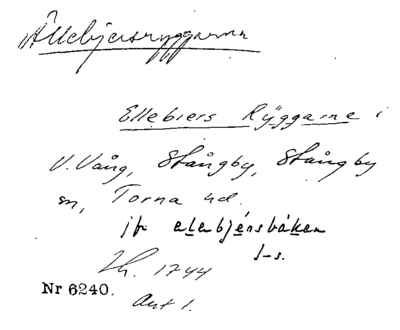 Ällebjersryggarna
Ellebiers Ryggarne i
V. Vång, Stångby, Stångby
sn, Torna hd.
jfr elebjersbáken
l-s.
Lh. 1744
Nr 6240. Akt 1.